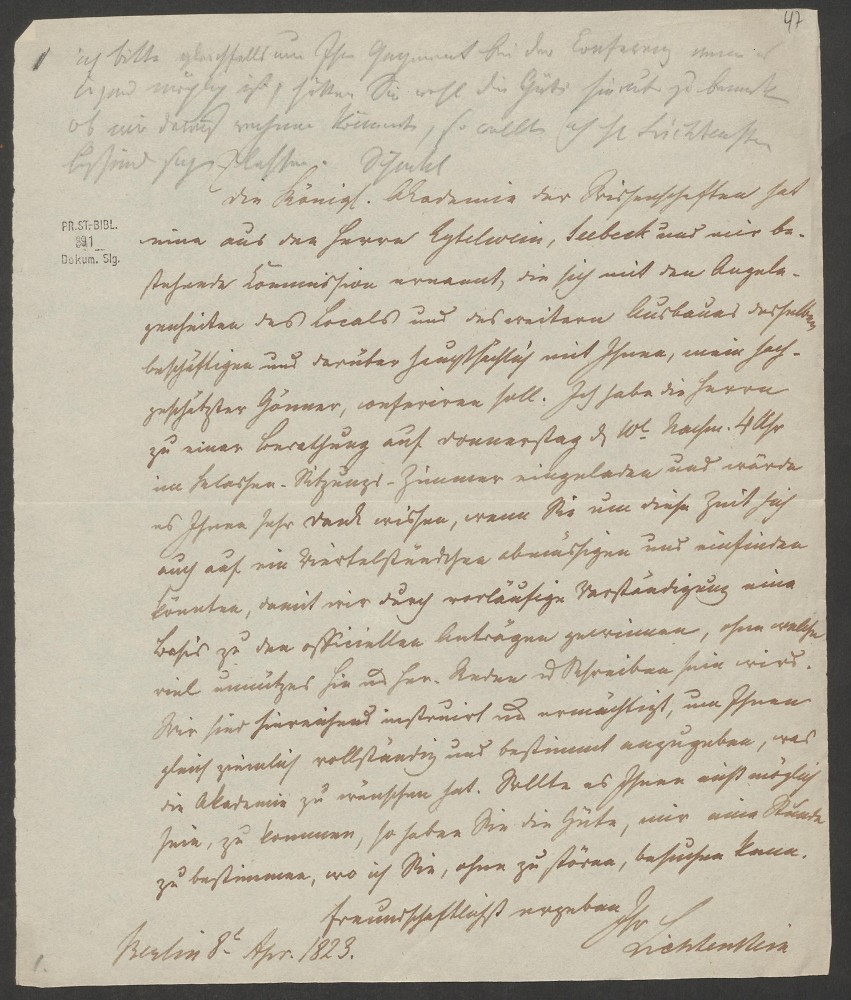 47
ich bitte gleichfalls um Ihre Gegenwart bei der Conferenz wenn es
irgend möglich ist, hätten Sie wohl die Güte hierunter zu bemerken
ob wir darauf rechnen können, so wollte ich H. Lichtenstein
Schinkel
Die Königl. Akademie der Wissenschaften hat
eine aus den Herren Eytelwein, Seebeck und mir be-
stehende Commission ernannt, die sich mit den Angele-
genheiten des Locals und des weitern Ausbaues desselben
beschäftigen und darüber hauptsächlich mit Ihnen, mein hoch-
geschätzter Gönner, conferiren soll. Ich habe die Herren
zu einer Berathung auf Donnerstag d 10t. Nachm. 4 Uhr
im Classen-Sitzungs-Zimmer eingeladen und würde
es Ihnen sehr Dank wissen, wenn Sie um diese Zeit sich
auch auf ein Viertelstündchen abmüssigen und einfinden
könnten, damit wir durch vorläufige Verständigung eine
Basis zu den officiellen Anträgen gewinnen, ohne welche
viel unnützes hin und her-Reden u Schreiben sein wird.
Wir sind hinreichend instruirt und ermächtigt, um Ihnen
gleich ziemlich vollständig und bestimmt anzugeben, was
die Akademie zu wünschen hat. Sollte es Ihnen nicht möglich
sein, zu kommen, so haben Sie die Güte, mir eine Stunde
zu bestimmen, wo ich Sie, ohne zu stören, besuchen kann.
freundschaftlichst ergeben Ihr
Lichtenstein
Berlin 8t Apr. 1823.
PR.ST.-BIBL.
Dokum. Slg.